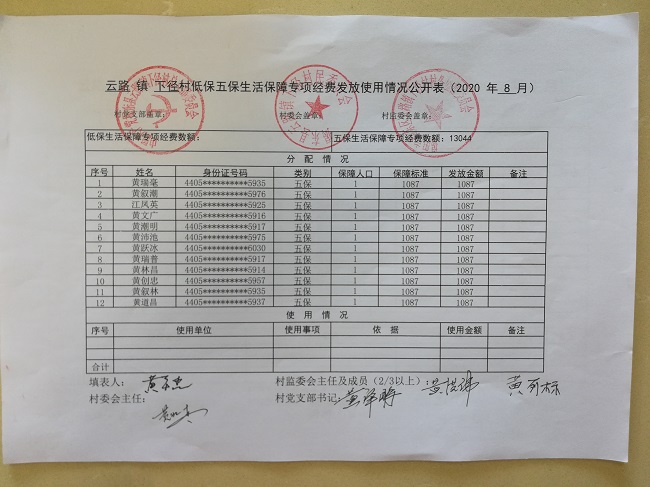 云路 镇 下径村低保五保生活保障专项经费发放使用情况公开表（2020 年 8 月）
村党支部盖章： 村委会盖章： 村监委会盖章：
低保生活保障专项经费数额： 五保生活保障专项经费数额：13044
分 配 情 况
序号 姓名 身份证号码 类别 保障人口 保障标准 发放金额 备注
1 黄瑞毫 4405**********5935 五保 1 1087 1087
2 黄叙潮 4405**********5976 五保 1 1087 1087
3 江凤英 4405**********5925 五保 1 1087 1087
4 黄文广 4405**********5916 五保 1 1087 1087
5 黄潮明 4405**********5917 五保 1 1087 1087
6 黄沛池 4405**********5975 五保 1 1087 1087
7 黄跃冰 4405**********6030 五保 1 1087 1087
8 黄瑞普 4405**********5917 五保 1 1087 1087
9 黄林昌 4405**********5914 五保 1 1087 1087
10 黄创忠 4405**********5957 五保 1 1087 1087
11 黄叙林 4405**********5935 五保 1 1087 1087
12 黄道昌 4405**********5937 五保 1 1087 1087
使 用 情 况
序号 使用单位 使用事项 依 据 使用金额 备注
合计
填表人： 村监委会主任及成员（2/3以上）
村委会主任： 村党支部书记：